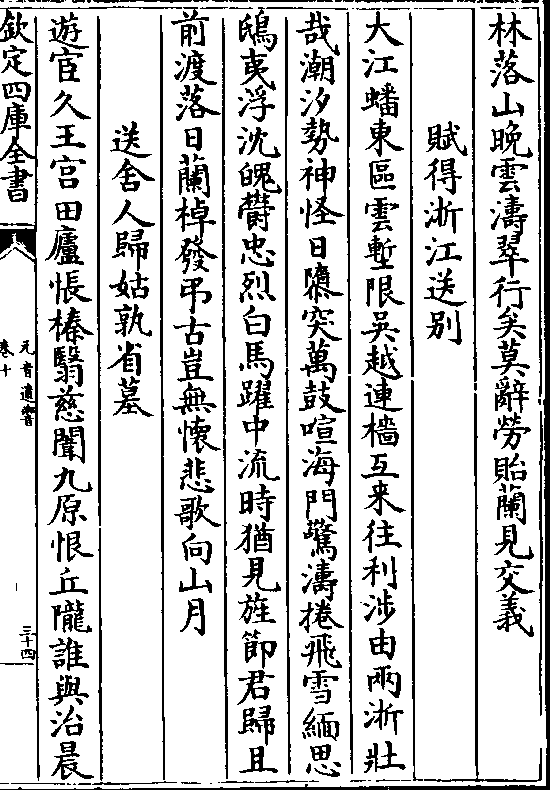 林落山晚雲濤翠行矣莫辭勞貽蘭見交義
賦得浙江送别
大江蟠東區雲塹限吳越連檣互来往利涉由兩浙壯
哉潮汐勢神怪日隳突萬鼓喧海門驚濤捲飛雪緬思
鴟夷浮沈魄欝忠烈白馬躍中流時猶見旌節君歸且
前渡落日蘭棹發弔古豈無懷悲歌向山月
送舍人歸姑孰省墓
遊宦久王宫田廬悵榛翳慈闈九原恨丘隴誰與治晨
欽定四庫全書
卷十
三十四